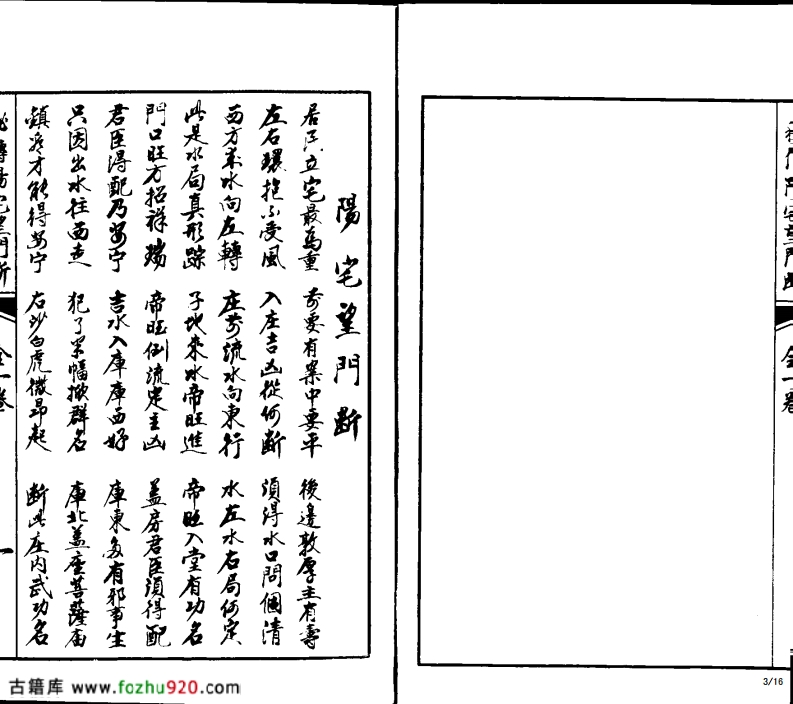 陽宅望門断
居民立宅最為重 前要有案中要平 後邊敦厚主有壽
左右環抱不受風 入庄吉凶從何断 須得水口問個清
西方来水向左轉 庄前流水向東行 水左水右局何定
此是水局真形踪 子地来水帝旺進 帝旺入堂有功名
門口旺方招祥瑞 帝旺倒流定主凶 盖房君臣須得配
君臣得配乃安宁 吉水入庫庫西好 庫東多有邪事生
只因出水往西走 犯了 群名 庫北盖座菩薩庙
鎮 才能得安宁 右沙白虎微昂起 断此庄内武功名
全一卷
一
望門断
全一卷
古籍库 www.fozhu920.com
3/16